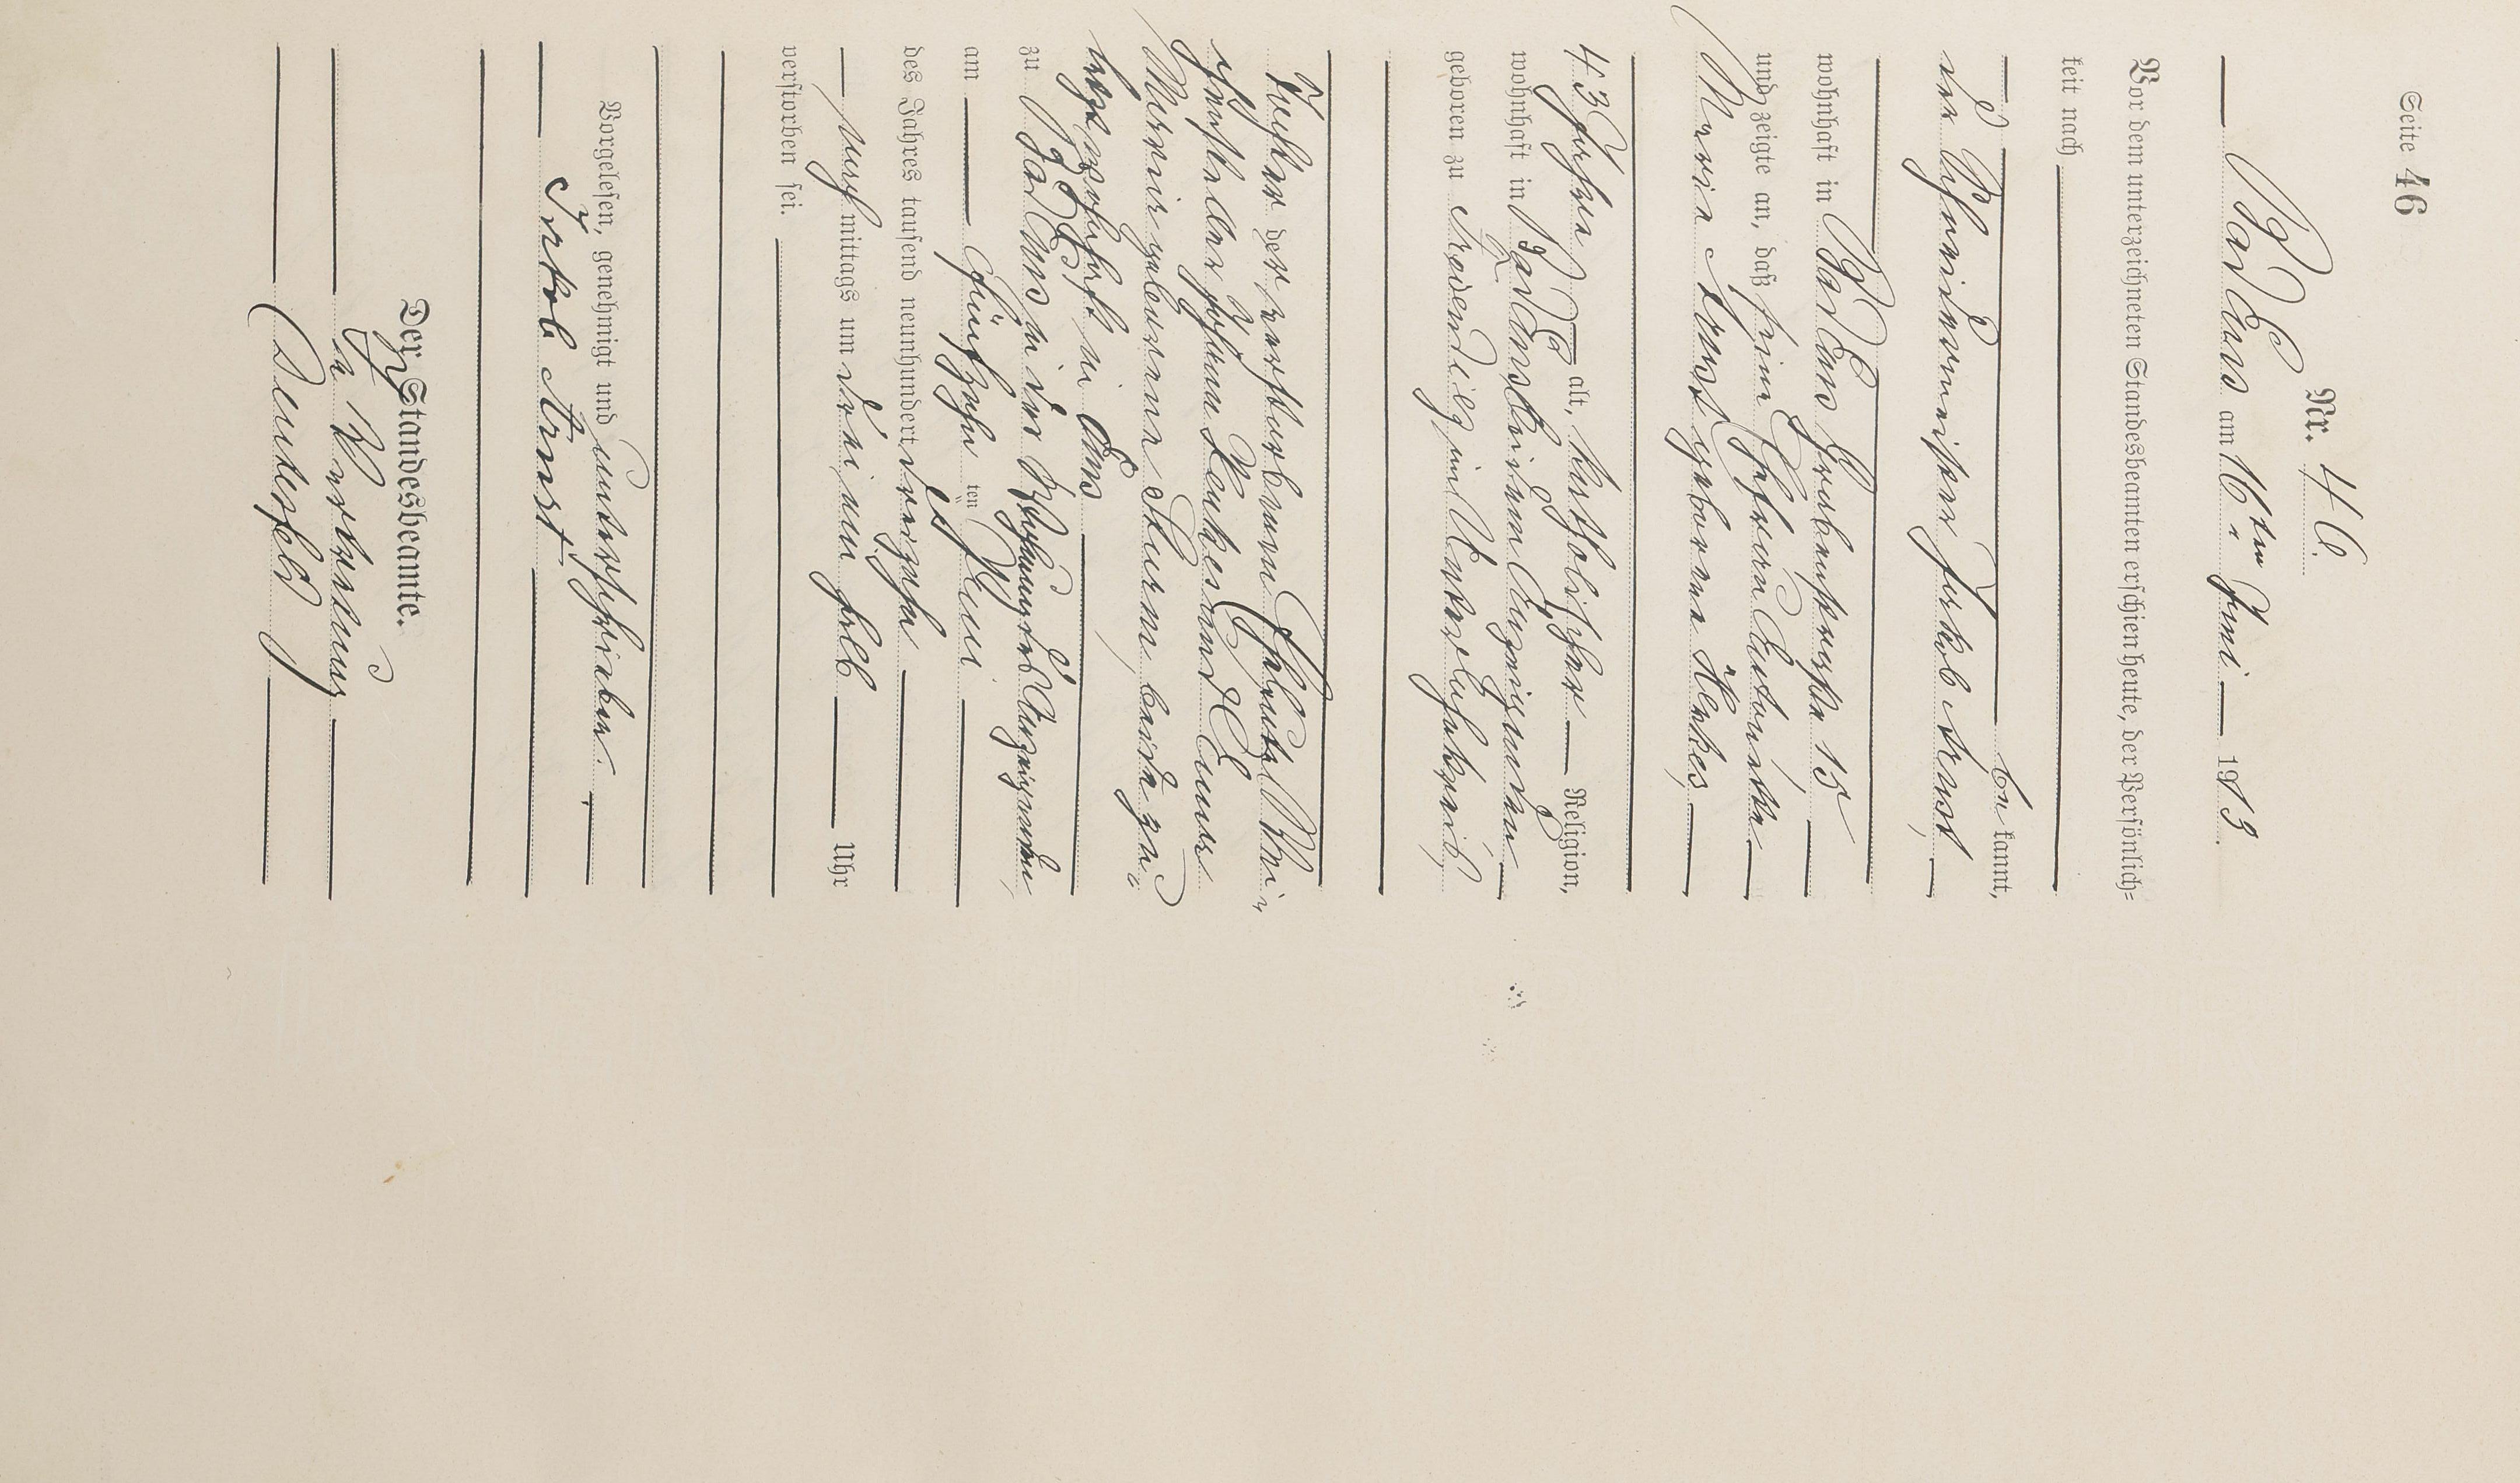 Seite 46
Nr. 46.
Bad Ems am 16ten Juni 1913.
Vor dem unterzeichneten Standesbeamten erschien heute, der Persönlich=
keit nach
be kannt,
der Schneidermeister Jakob Arnst,
wohnhaft in Bad Ems Grabenstraße 15
und zeigte an, daß seine Ehefrau Antonette
Maria Arnst geborene Henkes,
43 Jahre alt, katholischer Religion,
wohnhaft in Bad Ems bei dem Anzeigenden
geboren zu Arzbach im Unterlahnkreis,
Tochter der verstorbenen Eheleute
Schustermeister Johann Henkes und Anna
Maria geborenen Sturm, beide zu=
letzt wohnhaft in Ems
zu Bad Ems in der Wohnung des Anzeigenden,
am fünfzehnten Juni
des Jahres tausend neunhundert dreizehn
nachmittags um drei ein halb Uhr
verstorben sei.
Vorgelesen, genehmigt und unterschrieben.
Jakob Arnst.
Der Standesbeamte.
In Vertretung